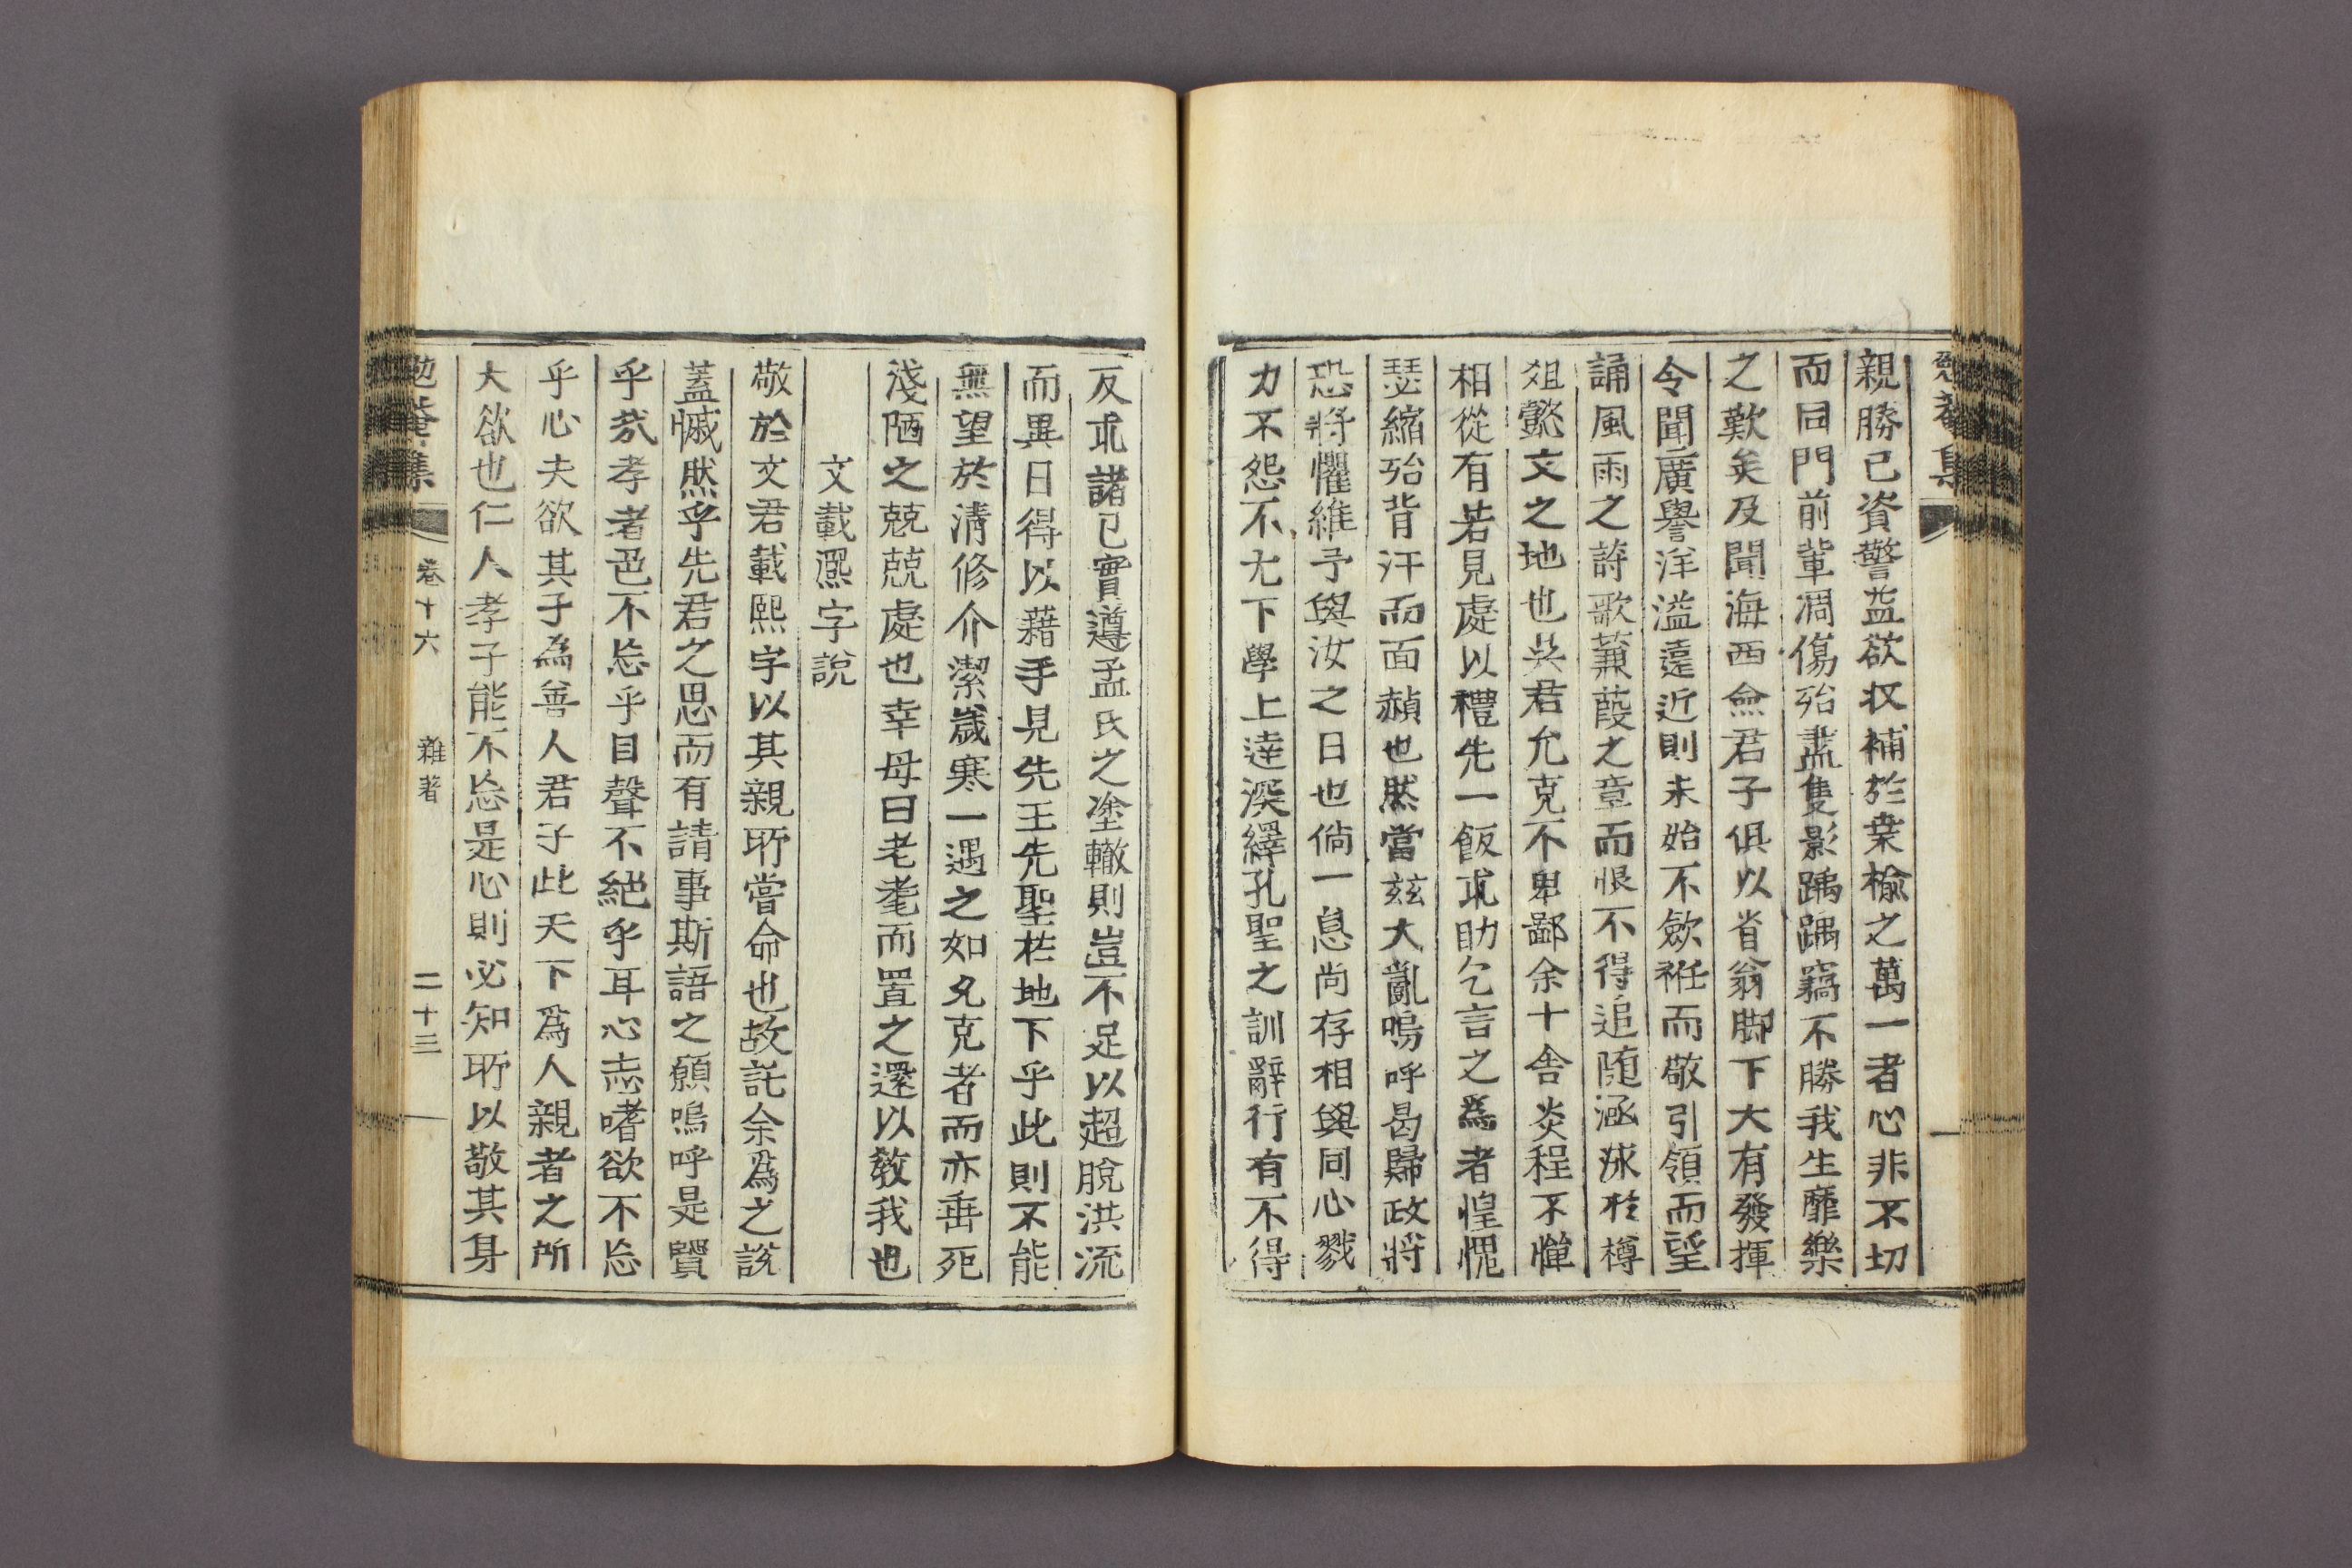 親勝己資警益欲収補於桑楡之萬一者心非不切
而同門前輩凋傷殆盡隻影踽踽竊不勝我生靡樂
之歎矣及聞海西僉君子俱以省翁脚下大有發揮
令聞廣譽洋溢遠近則未始不歛袵而敬引領而望
誦風雨之詩歌蒹葭之章而恨不得追随涵泳於樽
俎懿文之地也吳君允克不卑鄙余十舎炎程不憚
相從有若見處以禮先一飯求助乞言之爲者惶愧
瑟縮殆背汗而面赬也然當玆大亂嗚呼曷歸政將
恐將懼維予與汝之日也倘一息尚存相與同心戮
力不怨不尤下學上達深繹孔聖之訓辭行有不得
反求諸己實遵孟氏之塗轍則豈不足以超脫洪流
而異日得以藉手見先王先聖於地下乎此則不能
無望於清修介潔歲寒一遇之如允克者而亦垂死
淺陋之兢兢處也幸毋曰老耄而置之還以敎我也
文載熙字說
敬於文君載熙字以其親所嘗命也故託余爲之說
蓋慽然乎先君之思而有請事斯語之願嗚呼是賢
乎哉孝者色不忘乎目聲不絶乎耳心志嗜欲不忘
乎心夫欲其子為善人君子此天下爲人親者之所
大欲也仁人孝子能不忘是心則必知所以敬其身
勉菴集 卷十六 雜著 二十三